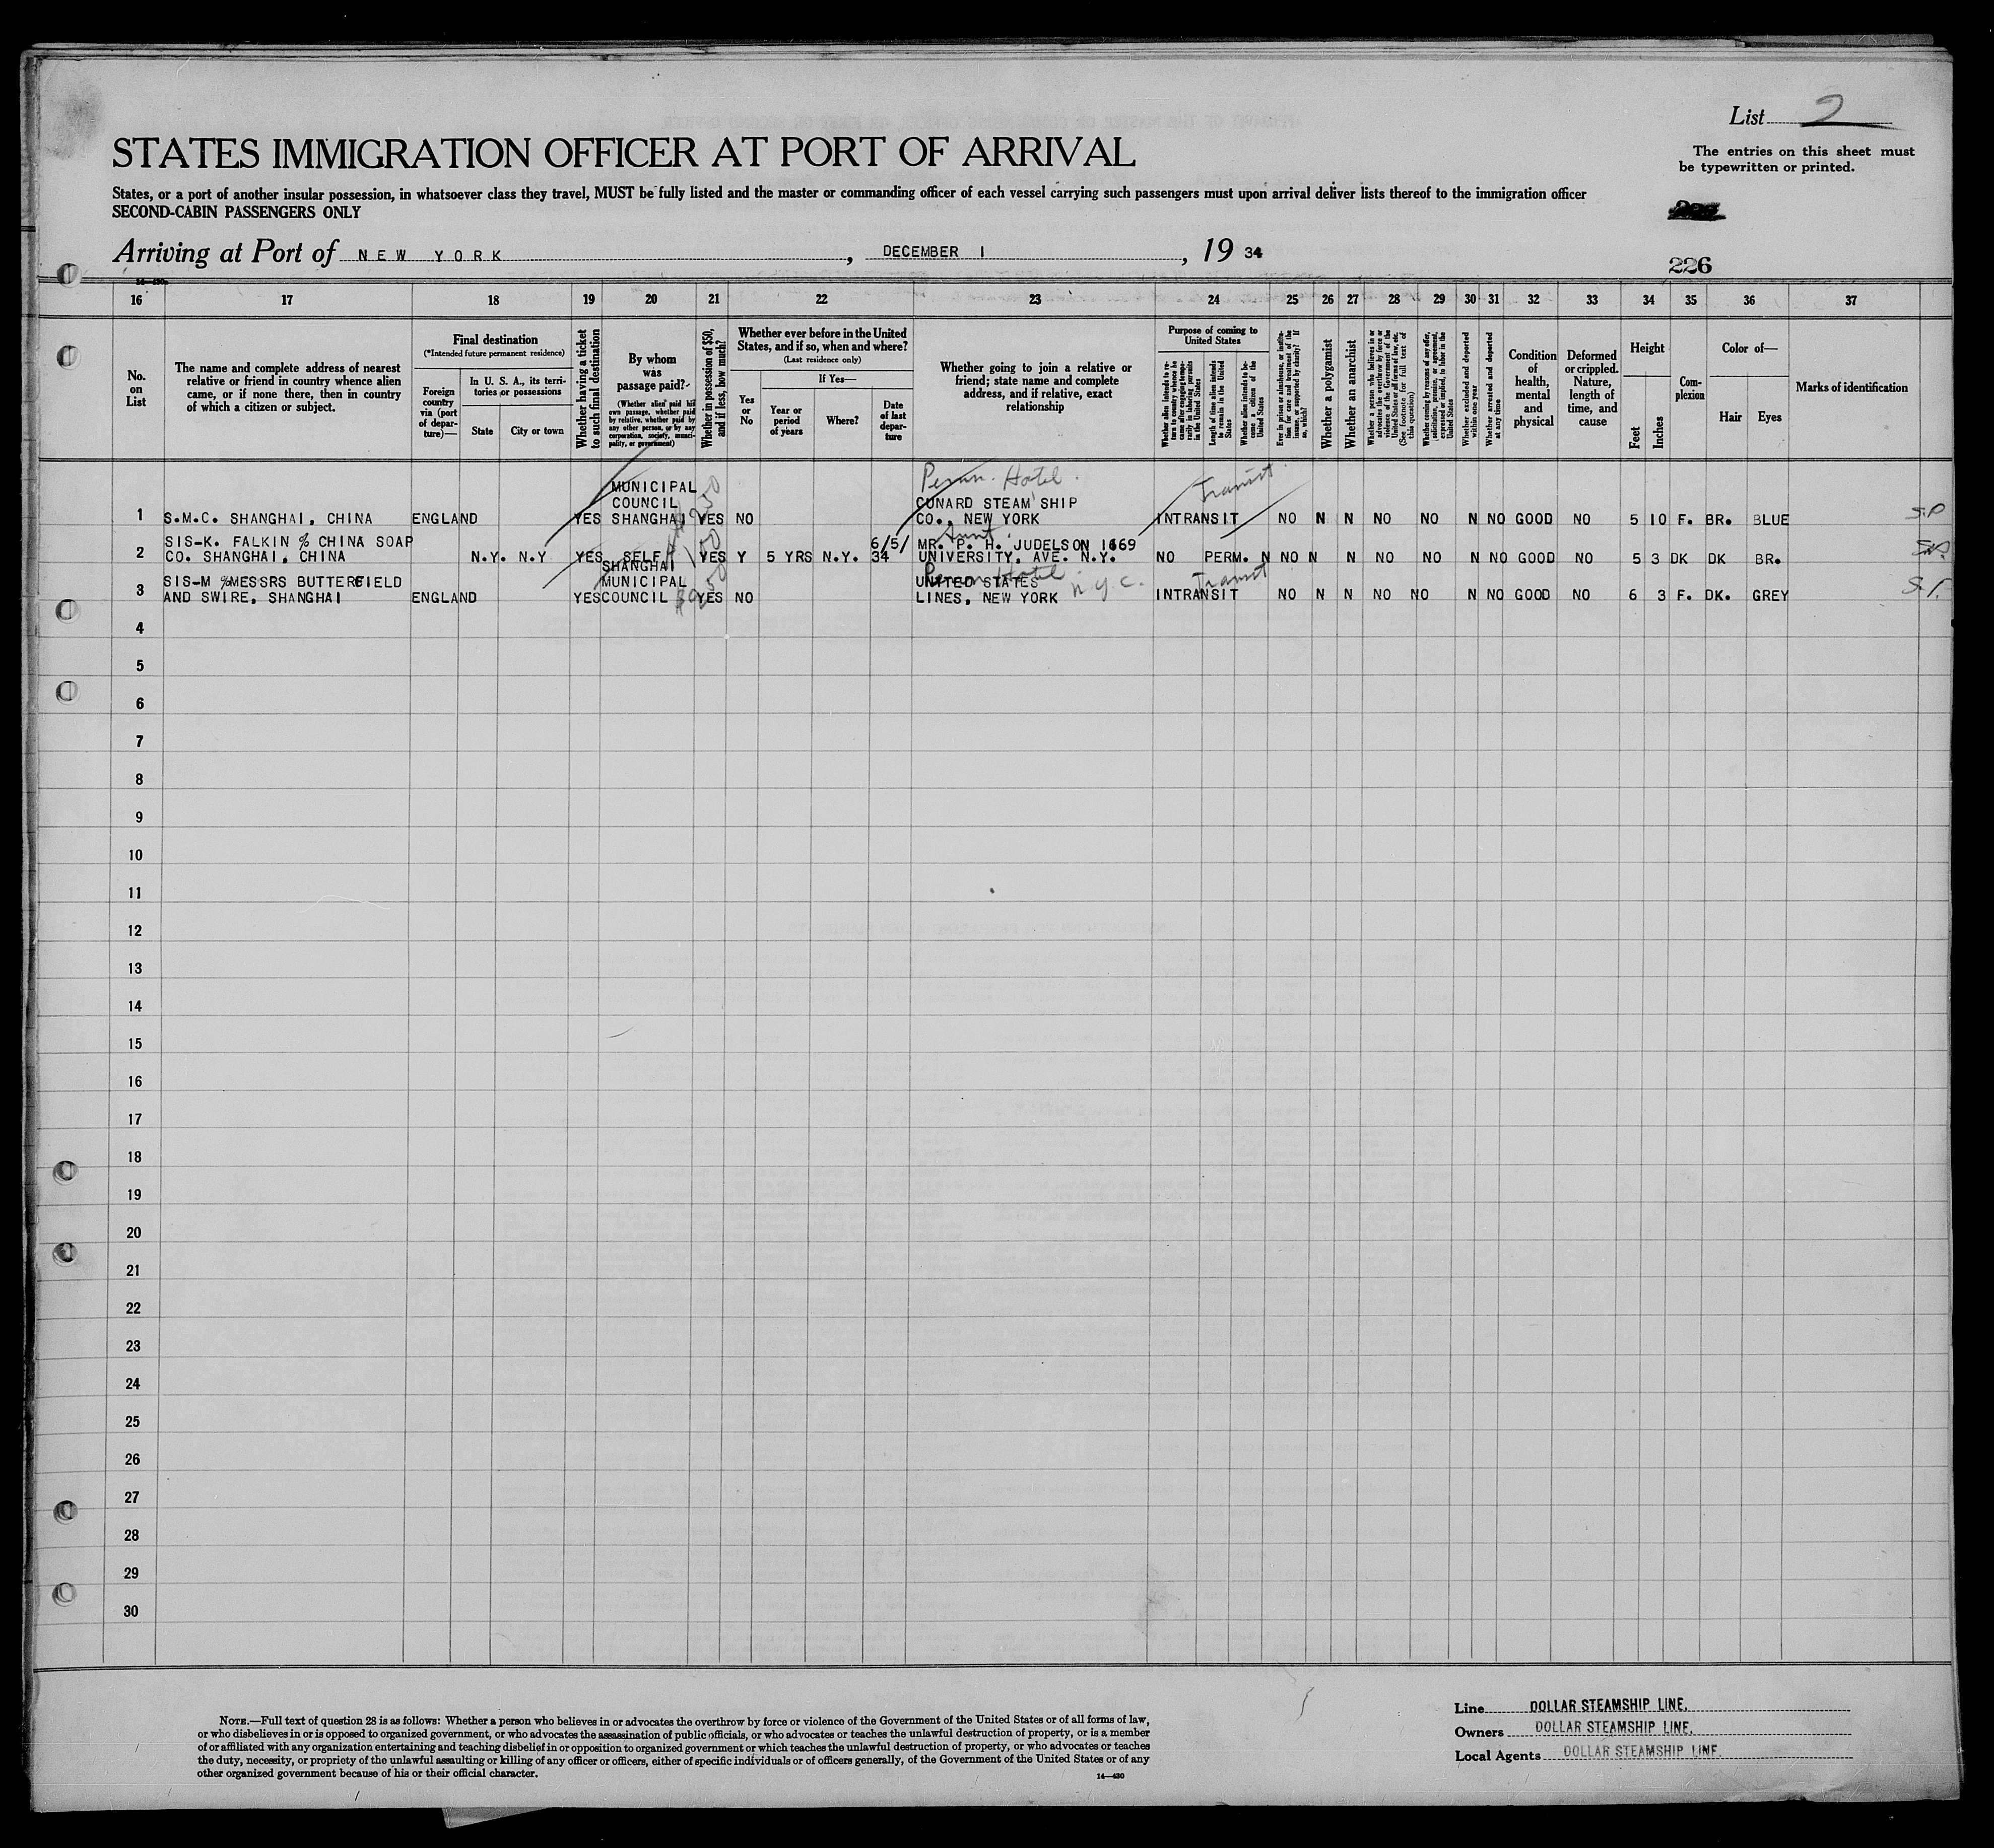 List 2
The entries on this sheet must
be typewritten or printed.
STATES IMMIGRATION OFFICER AT PORT OF ARRIVAL
States, or a port of another insular possession, in whatsoever class they travel, MUST be fully listed and the master or commanding officer of each vessel carrying such passengers must upon arrival deliver lists thereof to the immigration officer
SECOND-CABIN PASSENGERS ONLY
Arriving at Port of NEW YORK, DECEMBER 1, 19 34
226
16 17 18 19 20 21 22 23 24 25 26 27 28 29 30 31 32 33 34 35 36 37
No.
on
List
The name and complete address of nearest
relative or friend in country whence alien
came, or if none there, then in country
of which a citizen or subject.
Final destination
(*Intended future permanent residence)
Foreign
country
via (port
of depar-
ture)—
In U. S. A., its terri-
tories or possessions
State
City or town
Whether having a ticket
to such final destination
By whom
was
passage paid?
(Whether alien paid his
own passage, whether paid
by relative, whether paid by
any other person, or by any
corporation, society, munici-
pality, or government)
Whether in possession of $50,
and if less, how much?
Whether ever before in the United
States, and if so, when and where?
(Last residence only)
Yes
or
No
If Yes—
Year or
period
of years
Where?
Date
of last
depar-
ture
Whether going to join a relative or
friend; state name and complete
address, and if relative, exact
relationship
Purpose of coming to
United States
Whether alien intends to re-
turn to country whence he
came after engaging tempo-
rarily in laboring pursuits
in the United States
Length of time alien intends
to remain in the United
States
Whether alien intends to be-
come a citizen of the
United States
Ever in prison or almshouse, or institu-
tion for care and treatment of the
insane, or supported by charity? If
so, which?
Whether a polygamist
Whether an anarchist
Whether a person who believes in or
advocates the overthrow by force or
violence of the Government of the
United States or all forms of law, etc.
(See footnote for full text of
this question)
Whether coming by reason of any offer,
solicitation, promise, or agreement,
expressed or implied, to labor in the
United States
Whether excluded and deported
within one year
Whether arrested and deported
at any time
Condition
of
health,
mental
and
physical
Deformed
or crippled.
Nature,
length of
time, and
cause
Height
Feet
Inches
Com-
plexion
Color of—
Hair
Eyes
Marks of identification
Hotel
Transit
MUNICIPAL
COUNCIL CUNARD STEAM SHIP
1 S.M.C. SHANGHAI, CHINA ENGLAND YES SHANGHAI YES NO CO., NEW YORK INTRANSIT NO N N NO NO N NO GOOD NO 5 10 F. BR. BLUE S.P
Aunt
SIS-K. FALKIN % CHINA SOAP 6/5/ MR. P. H. JUDELSON 1669
2 CO. SHANGHAI, CHINA N.Y. N.Y YES SELF YES Y 5 YRS N.Y. 34 UNIVERSITY. AVE. N.Y. NO PERM. N NO N N NO NO N NO GOOD NO 5 3 DK DK BR.
SHANGHAI Hotel n.y.c. Transit
SIS-M %MESSRS BUTTERFIELD MUNICIPAL UNITED STATES
3 AND SWIRE, SHANGHAI ENGLAND YES COUNCIL YES NO LINES, NEW YORK INTRANSIT NO N N NO NO N NO GOOD NO 6 3 F. DK. GREY
4
5
6
7
8
9
10
11
12
13
14
15
16
17
18
19
20
21
22
23
24
25
26
27
28
29
30
NOTE.—Full text of question 28 is as follows: Whether a person who believes in or advocates the overthrow by force or violence of the Government of the United States or of all forms of law,
or who disbelieves in or is opposed to organized government, or who advocates the assassination of public officials, or who advocates or teaches the unlawful destruction of property, or is a member
of or affiliated with any organization entertaining and teaching disbelief in or opposition to organized government or which teaches the unlawful destruction of property, or who advocates or teaches
the duty, necessity, or propriety of the unlawful assaulting or killing of any officer or officers, either of specific individuals or of officers generally, of the Government of the United States or of any
other organized government because of his or their official character.
14—430
Line DOLLAR STEAMSHIP LINE.
Owners DOLLAR STEAMSHIP LINE.
Local Agents DOLLAR STEAMSHIP LINE.